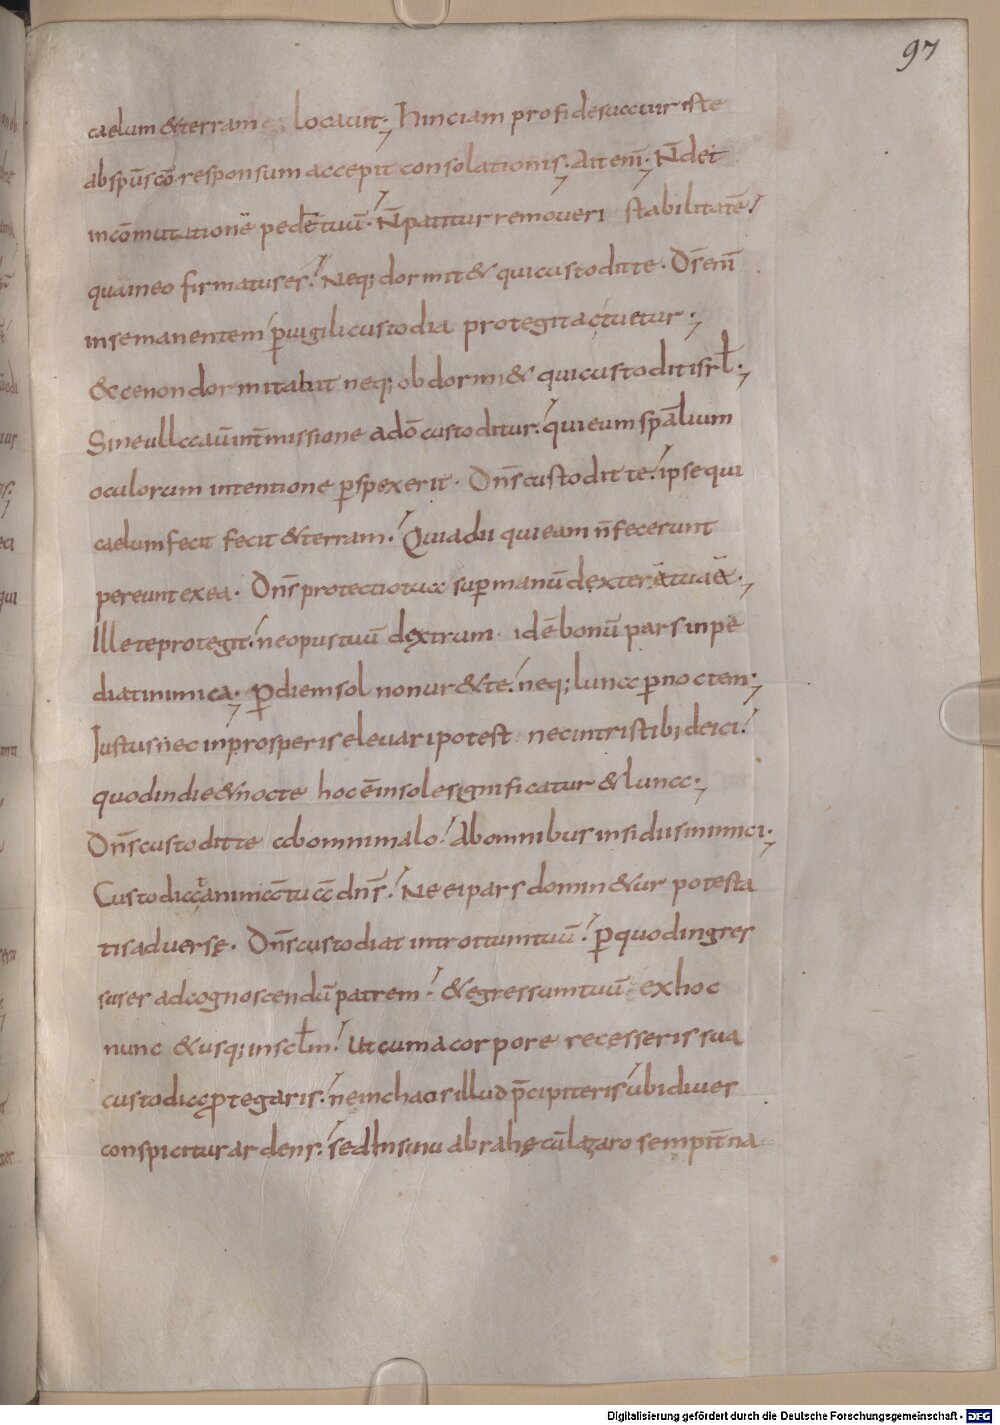 97
caelum & terram locavit; hinc iam pro fide succur iste
ab spū scō responsum accepit consolationis; Ait enī; N̄ det
in cōmutationē pedē tuū; N̄ patitur removeri stabilitatē
qua in eo firmatus es; Neq; dormit& qui custodit te. Ds̄ enī
in se manentem p̱vigili custodia protegit ac tuetur;
& ce non dormitabit neq; obdormi& qui custodit isrł;
Sine ulla aū int̄missione a dō custoditur; qui eum sp̄alium
oculorum intentione p̱spexerit. Dn̄s custodit te; ipse qui
caelum fecit fecit & terram; Quia dii qui eam n̄ fecerunt
pereunt ex ea. Dn̄s protectio tua sup̱ manū dexterę̄ tuaę̄;
Ille te protegit; ne opus tuū dextrum id ē bonū pars inpe
diat inimica; P̱ diem sol non ur& te; neq; luna p̱ noctem;
Iustus nec in prosperis elevari potest nec in tristib; deici;
quod in die & nocte hoc ē in sole significatur & luna;
Dn̄s custodit te ab omni malo; Ab omnibus insidiis inimici;
Custodiat animā tuā dn̄s; Ne ei pars domin&ur potesta
tis adversę. Dn̄s custodiat introitum tuū; p̱ quod ingres
sus es ad cognoscendū patrem; & egressum tuū ex hoc
nunc & usq; in scłm; Ut cum a corpore recesseris sua
custodia p̱tegaris; ne in chaos illud p̄cipiteris ubi dives
conspicitur ardens; sed In sinu abrahę cū lazaro sempit̄na
Digitalisierung gefördert durch die Deutsche Forschungsgemeinschaft - DFG